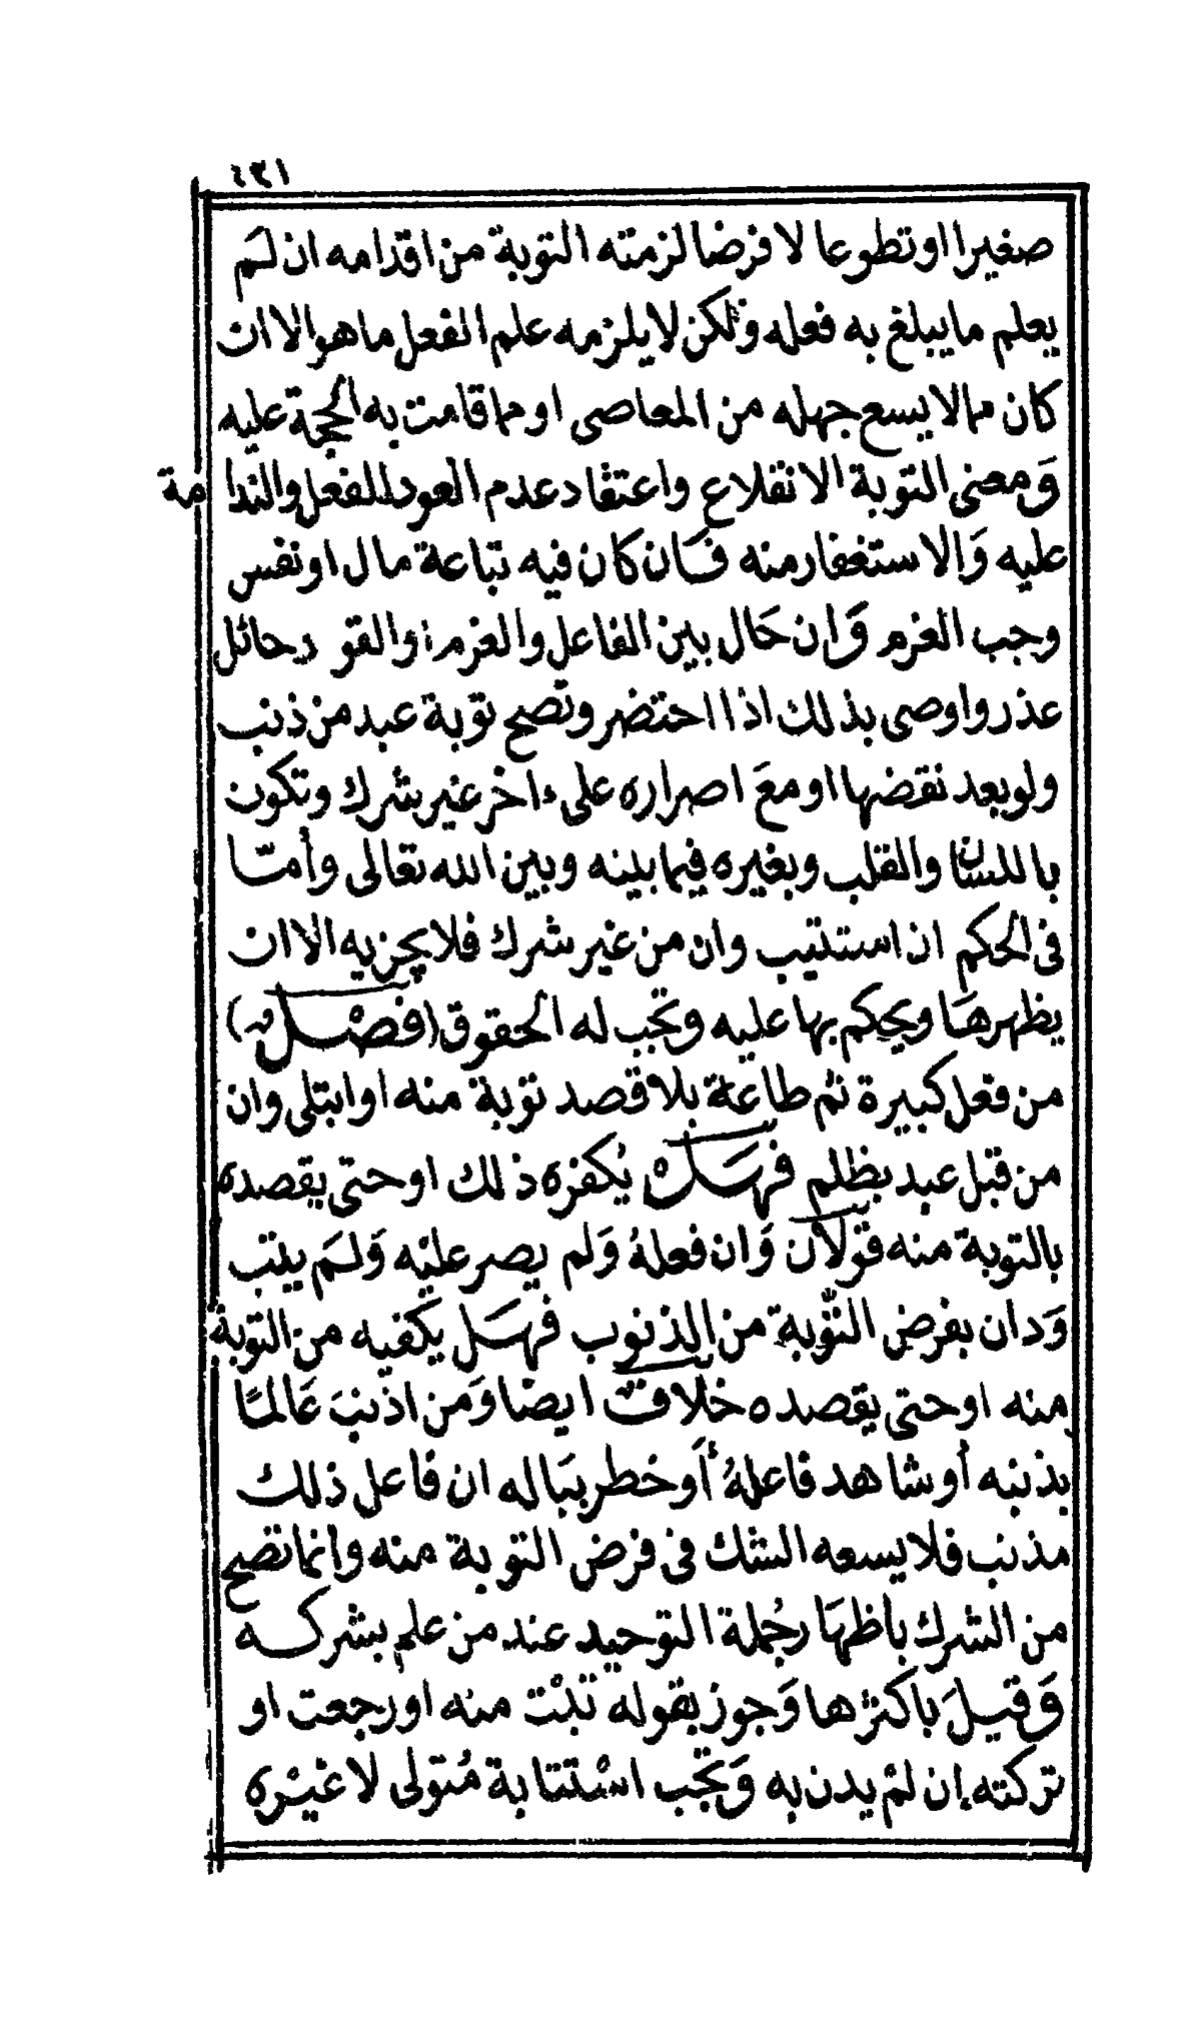 ٤٣١
صغيرا او تطوعا لا فرضا لزمته التوبة من اقدامه ان لَم
يعلم ما يبلغ به فعله ولكن لا يلزمه علم الفعل ما هو الا ان
كان مما لا يسع جهله من المعاصى او مما قامت به الحجة عليه
وَمعنى التوبة الانقلاع واعتقاد عدم العود للفعل والندامة
عليه وَالاستغفار منه فَان كان فيه تباعة مال او نفس
وجب الغرم وَان حَال بين الفاعل والغرم او القود حائل
عذر واوصى بذلك اذا احتضر وتصح توبة عبد من ذنب
ولو بعد نقضها او معَ اصراره على ءاخر غير شرك وتكون
باللسان والقلب وبغيره فيما بينه وبين الله تعالى وأمّا
فى الحكم ان استتيب وان من غير شرك فلا يجزيه الا ان
يظهرهَا ويحكم بها عليه وتجب له الحقوق (فصْل) 
من فعل كبيرة ثم طاعة بلا قصد توبة منه او ابتلى وان
من قبل عبد بظلم فهَل يُكفره ذلك او حتى يقصده
بالتوبة منه قولان وَان فعلهُ وَلم يصر عليْه وَلمَ يتب
وَدان بفرض التّوبة من الذنوب فهَل يكفيه من التوبة
منه او حتى يقصده خلافٌ ايضا وَمن اذنبَ عَالمًا
بذنبه أو شاهد فاعلهُ أَو خطر ببَاله ان فاعل ذلك
مذنب فلا يسعه الشك فى فرض التوبة منه وانما تصح
من الشرك باظهَار جُملة التوحيد عند من علم بشركه
وَقيلَ باكثرها وَجوز بقوله تبْت منه او رجعت او
تركته إن لمْ يدن به وَتجب اسْتتابة مُتولى لا غيْره